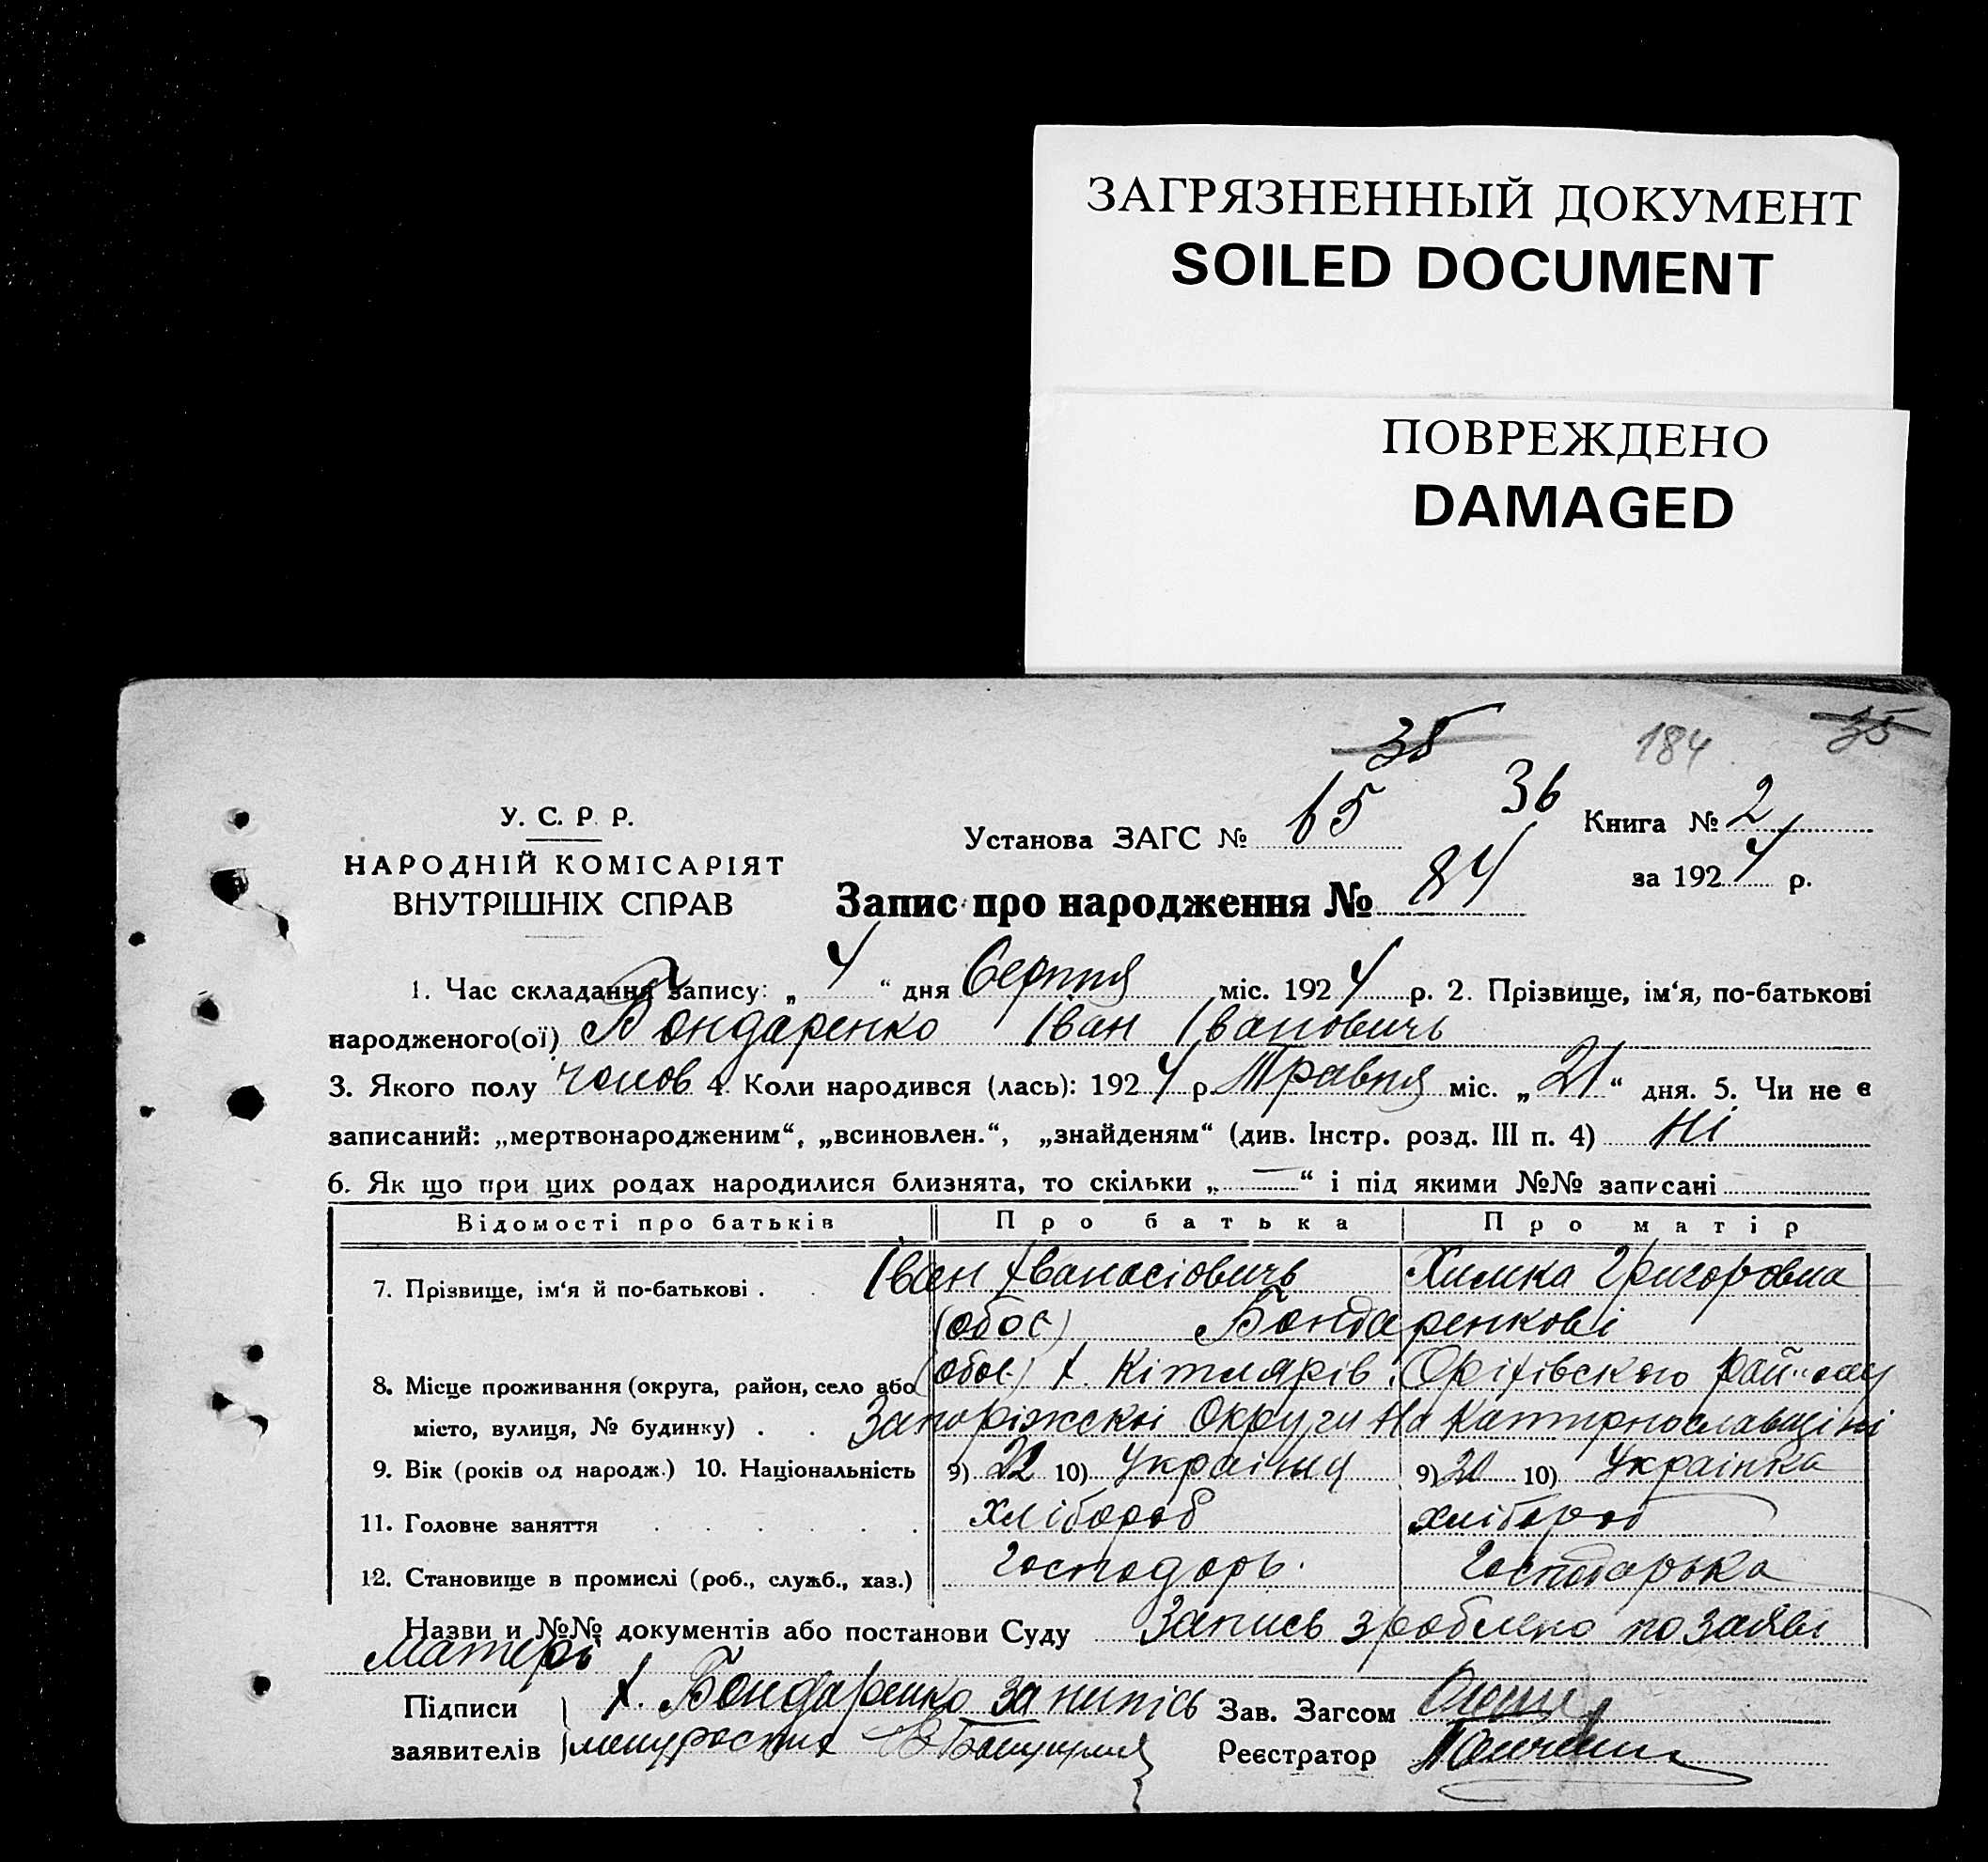 ЗАГРЯЗНЕННЫЙ ДОКУМЕНТ
SOILED DOCUMENT
ПОВРЕЖДЕНО
DAMAGED
35
184
У. С. Р. Р.
НАРОДНІЙ КОМІСАРІЯТ
ВНУТРІШНІХ СПРАВ
36
Установа ЗАГС № 65
Книга № 2
за 1924 р.
Запис про народження № 84
1. Час складання запису: „ 4 “ дня Серпня міс. 1924 р. 2. Прізвище, ім'я, по-батькові
народженого(ої) Бондаренко Іван Івановичь
3. Якого полу чолов 4. Коли народився (лась): 1924 р. Травня міс. „ 21 “ дня. 5. Чи не є
записаний: „мертвонародженим“, „всиновлен.“, „знайденям“ (див. Інстр. розд. III п. 4) Ні
6. Як що при цих родах народилися близнята, то скільки „ — “ і під якими №№ записані
Відомості про батьків Про батька Про матір
7. Прізвище, ім'я й по-батькові . . Іван Іванасіовичь Химка Григоровна
(обоє) Бондаренкові
8. Місце проживання (округа, район, село або (обоє) х. Кітлярів, Оріхівского
місто, вулиця, № будинку) . . Запоріжскоі Округи на Катернославщіні
9. Вік (років од народж.) 10. Національність 9) 22 10) Україниц 9) 20 10) Українка
11. Головне заняття . . . . . . Хлібороб хлібороб
12. Становище в промислі (роб., служб., хаз.) Господорь. Господарька
Назви и №№ документів або постанови Суду Запись зроблено по заяві
Матері
Підписи Х. Бондаренко за Зав. Загсом
заявителів Реєстратор